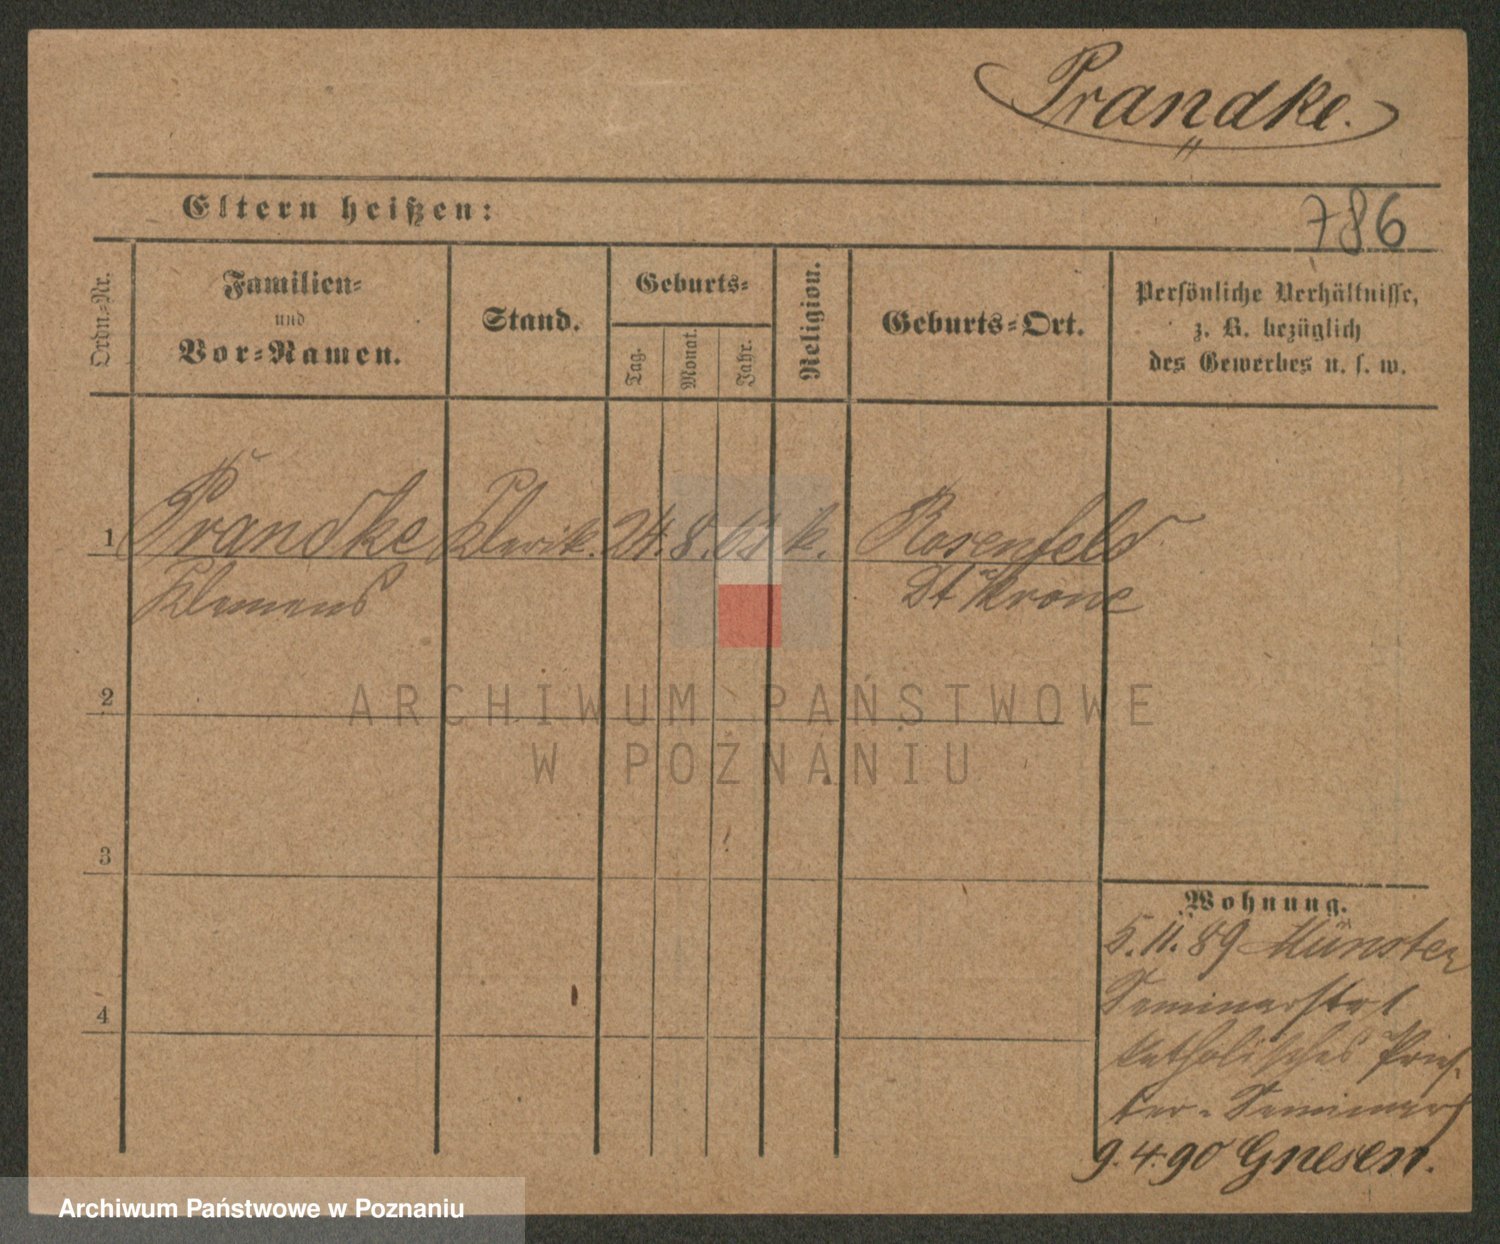 Prandke.
Eltern heißen:
786
Ordn.-Nr.
Familien-
und
Vor-Namen.
Stand.
Geburts-
Tag.
Monat.
Jahr.
Religion.
Geburts-Ort.
Persönliche Verhältnisse,
z. B. bezüglich
des Gewerbes u. s. w.
1 Prandke Klerik. 24. 8. k. Rosenfeld
Klemens Dt Krone
2
ARCHIWUM PAŃSTWOWE
W POZNANIU
3
Wohnung.
5.11.89 Münster
Seminarstr 1
katholisches Pries-
4
ter-Seminar
9.4.90 Gnesen.
Archiwum Państwowe w Poznaniu